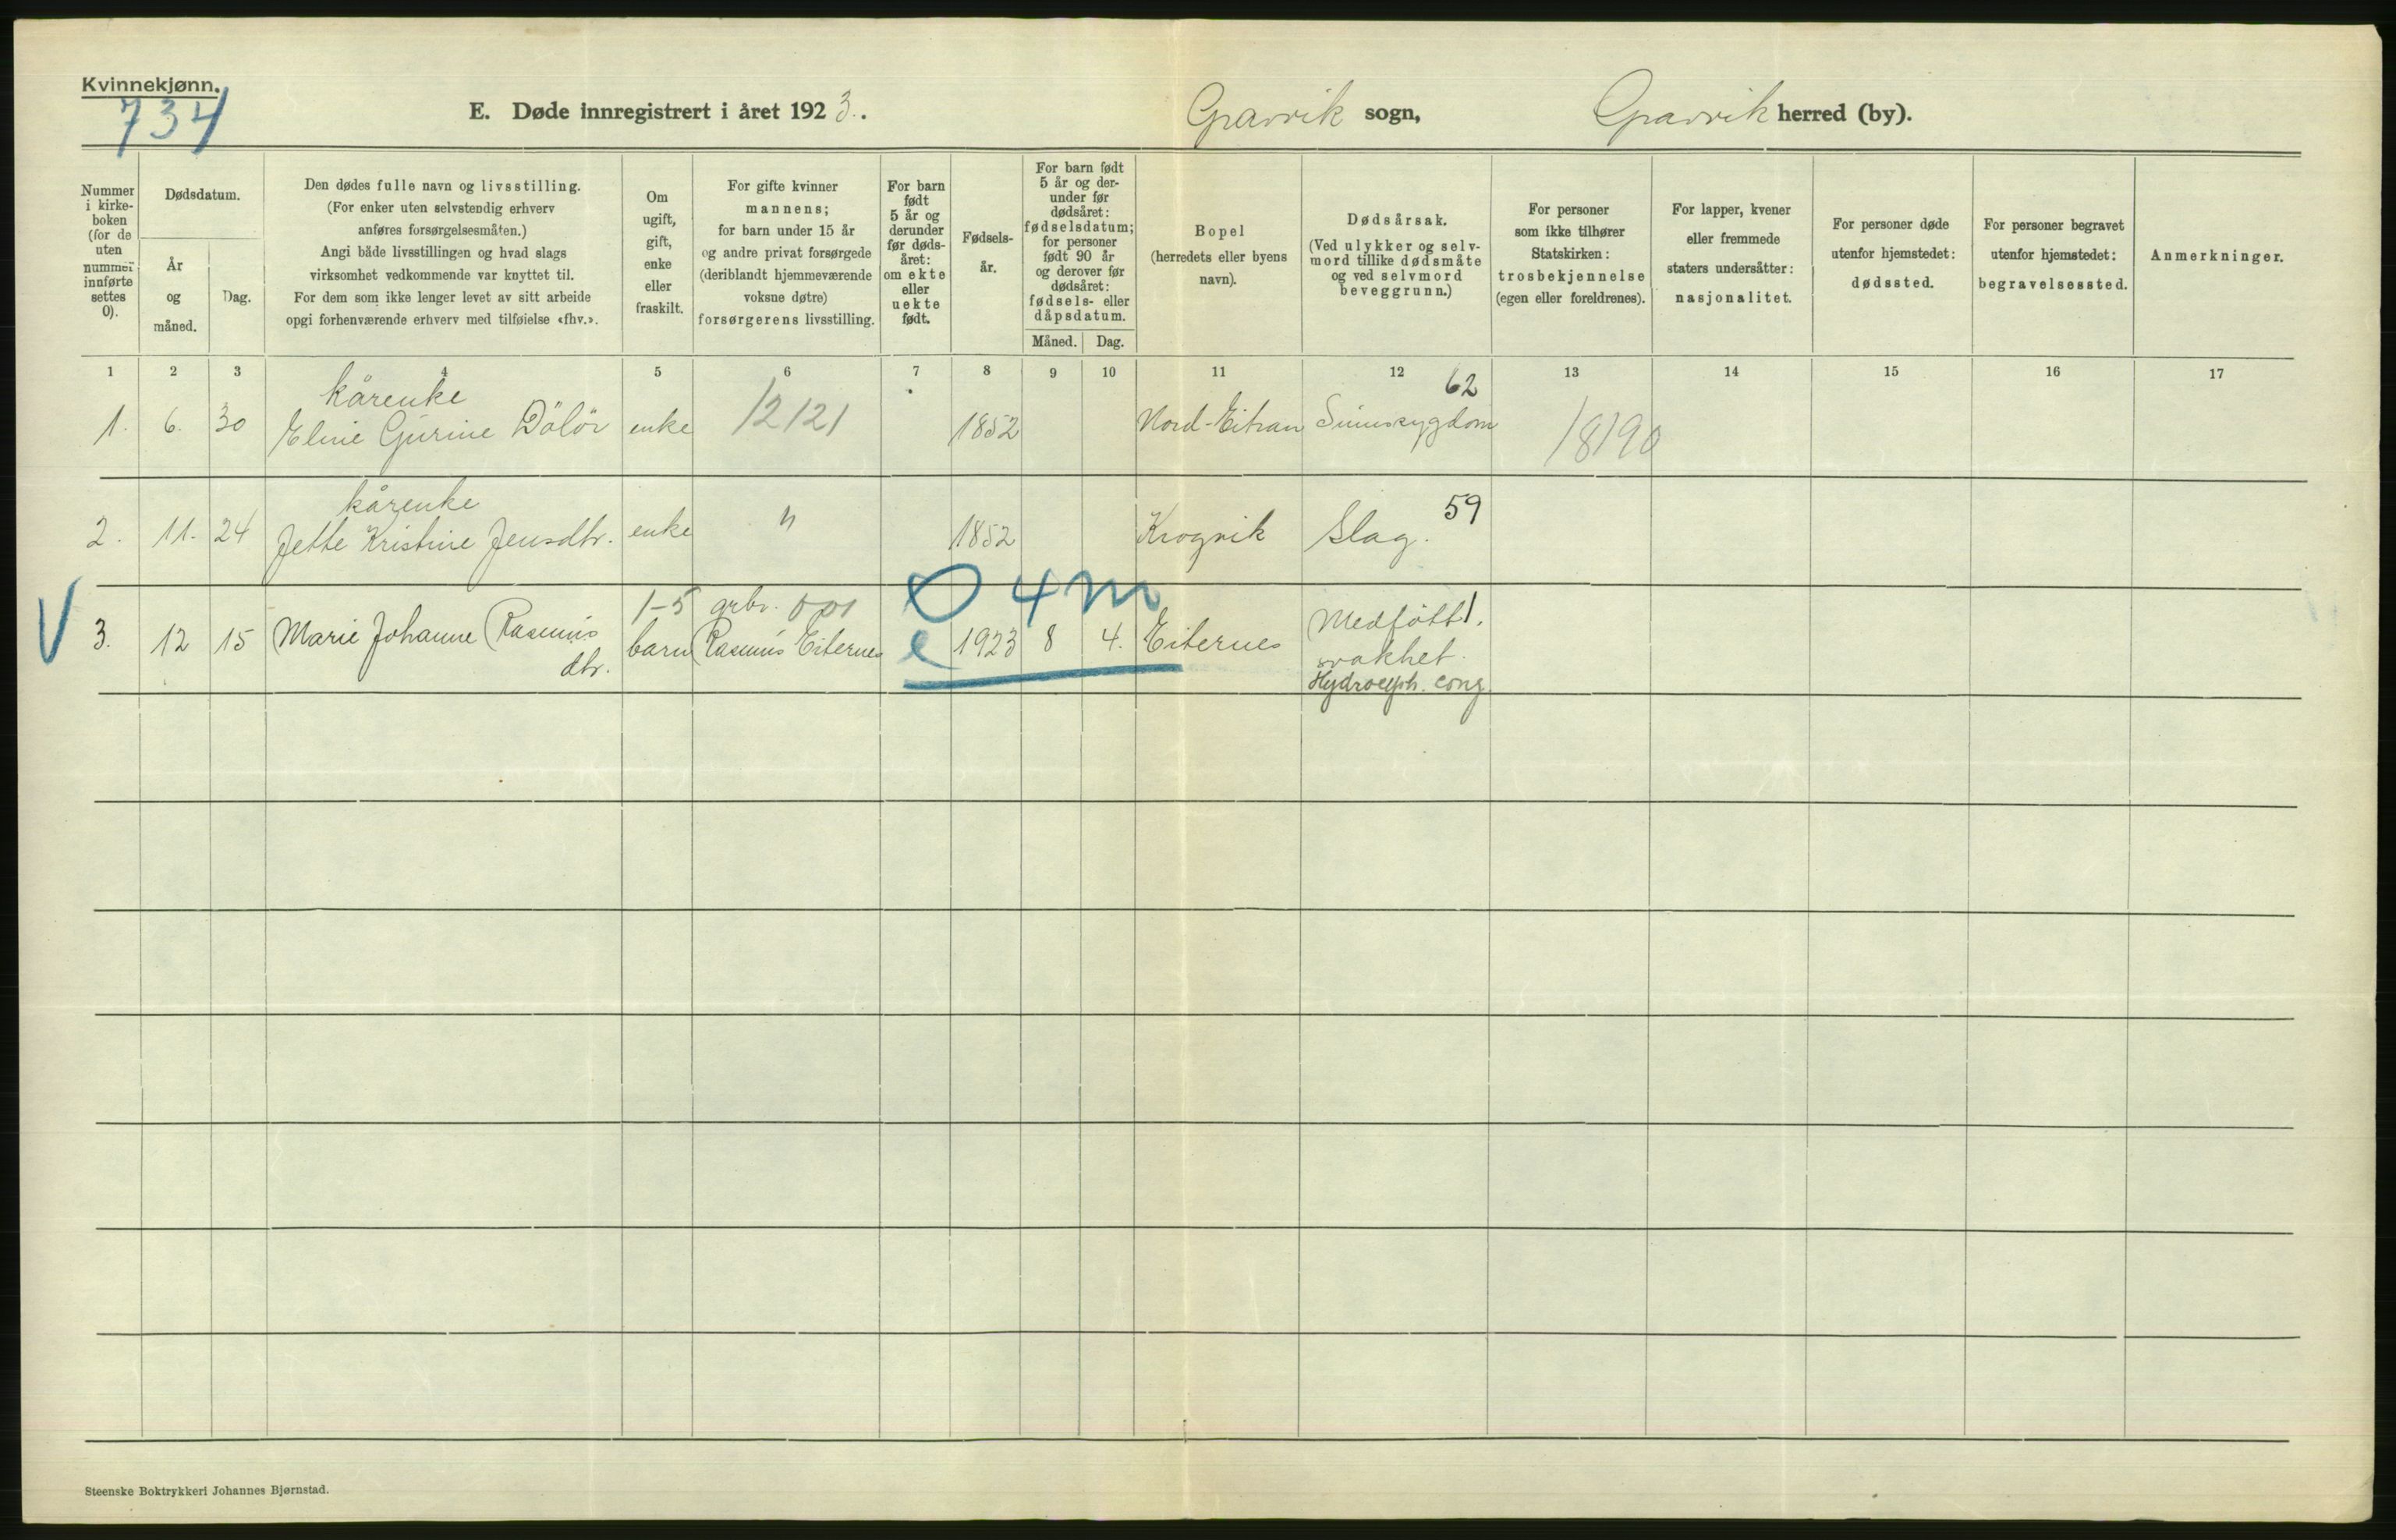 Kvinnekjønn.
734
E. Døde innregistrert i året 1923.
Gravvik sogn,
Gravvik herred (by).
Nummer
i kirke-
boken
(for de
uten
nummer
innførte
settes
0).
Dødsdatum.
År
og
måned.
Dag.
Den dødes fulle navn og livsstilling.
(For enker uten selvstendig erhverv
anføres forsørgelsesmåten.)
Angi både livsstillingen og hvad slags
virksomhet vedkommende var knyttet til.
For dem som ikke lenger levet av sitt arbeide
opgi forhenværende erhverv med tilføielse «fhv.».
Om
ugift,
gift,
enke
eller
fraskilt.
For gifte kvinner
mannens;
for barn under 15 år
og andre privat forsørgede
(deriblandt hjemmeværende
voksne døtre)
forsørgerens livsstilling.
For barn
født
5 år og
derunder
før døds-
året:
om ekte
eller
uekte
født.
Fødsels-
år.
For barn født
5 år og der-
under før
dødsåret:
fødselsdatum;
for personer
født 90 år
og derover før
dødsåret:
fødsels- eller
dåpsdatum.
Måned.
Dag.
Bopel
(herredets eller byens
navn).
Dødsårsak.
(Ved ulykker og selv-
mord tillike dødsmåte
og ved selvmord
beveggrunn.)
For personer
som ikke tilhører
Statskirken:
trosbekjennelse
(egen eller foreldrenes).
For lapper, kvener
eller fremmede
staters undersåtter:
nasjonalitet.
For personer døde
utenfor hjemstedet:
dødssted.
For personer begravet
utenfor hjemstedet:
begravelsessted.
Anmerkninger.
1 2 3 4 5 6 7 8 9 10 11 12 13 14 15 16 17
kårenke 62
1. 6. 30 Eline Gurine Dölör enke 12121 1852 Nord-Eitran Sinnssygdom 18190
kårenke 59
2. 11. 24 Jette Kristine Jensdtr. enke " 1852 Krogvik Slag.
1-5 grbr. 001 0 4 m Medfött 1.
V 3. 12 15 Marie Johanne Rasmus barn Rasmus Eiternes e 1923 8 4. Eiternes
dtr. svakhet.
Hydroceph. cong.
Steenske Boktrykkeri Johannes Bjørnstad.